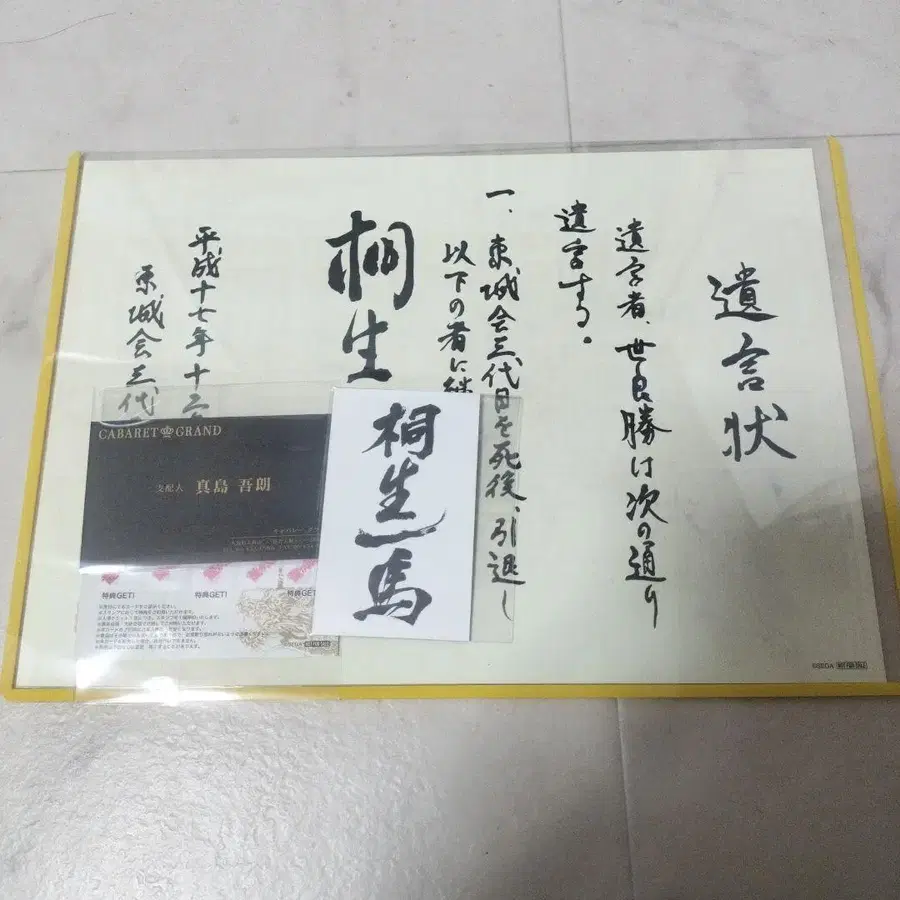 遺言状
遺言者、世良勝は次の通り
遺言する。
一、東城会三代目を死後、引退し
以下の者に継
桐生
平成十七年十二
東城会三代
CABARET GRAND
支配人 真島 吾朗
桐生一馬
特典GET! 特典GET! 特典GET!
©SEGA NOT FOR SALE